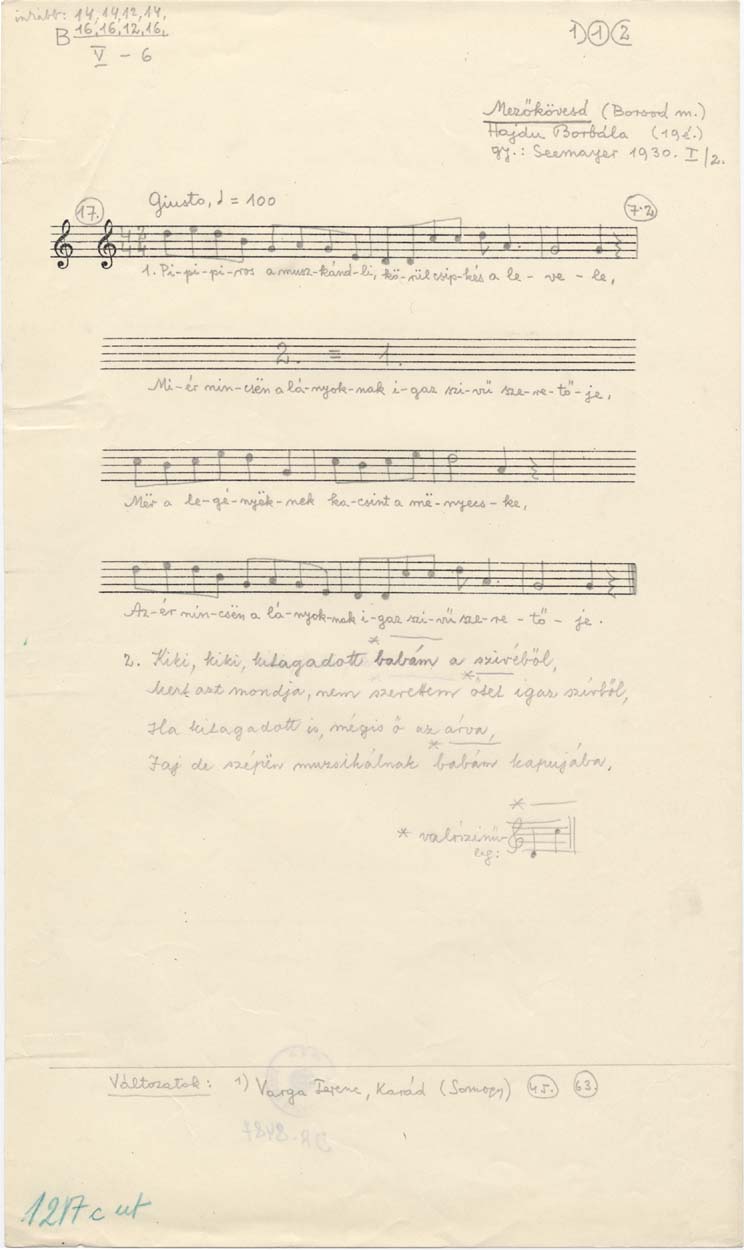 inkább: 14, 14, 12, 14,
B 16, 16, 12, 16,
V - 6
1) 1 2
Mezőkövesd (Borsod m.)
Hajdu Borbála (19é.)
gy.: Seemayer 1930. I/2.
17.
Giusto, ♩ = 100
7.2
1. Pi-pi-pi-ros a musz-kánd-li, kö-rül csip-kés a le-ve-le,
2. = 1.
Mi-ér nin-csën a lá-nyok-nak i-gaz szi-vü sze-re-tő-je,
Mër a le-gé-nyëk-nek ka-csint a më-nyecs-ke,
Az-ér nin-csën a lá-nyok-nak i-gaz szi-vü sze-re-tő-je.
*
2. Kiki, kiki, kitagadott babám a szivéből,
*
Mert azt mondja, nem szerettem őtet igaz szívből,
Ha kitagadott is, mégis ő az árva,
*
Jaj de szépën muzsikálnak babám kapujába,
*
* valószinü-
leg:
Változatok: 1) Varga Ferenc, Karád (Somogy) 45. 63.
1217c ut